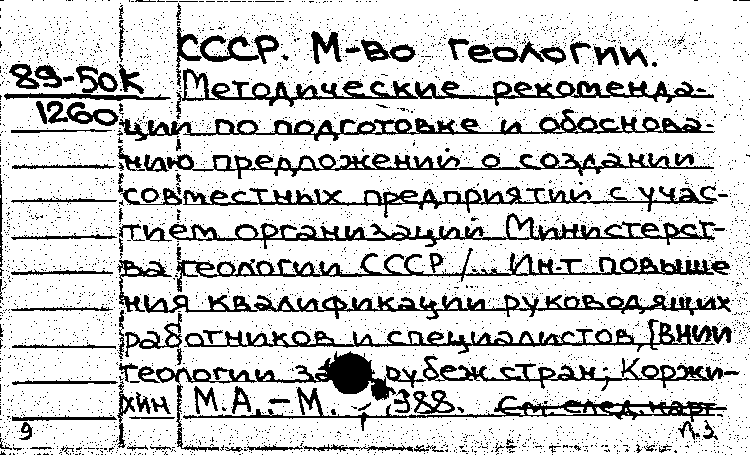 СССР. М-во геологии.
89-50К Методические рекоменда-
1260 ции по подготовке и обоснова-
нию предложений о создании
совместных предприятий с учас-
тием организаций Министерст-
ва геологии СССР /... Ин-т повыше
ния квалификации руководящих
работников и специалистов, [ВНИИ
геологии за рубеж. стран; Коржи-
хин М.А.. – М. , 988. См. след. карт.
9